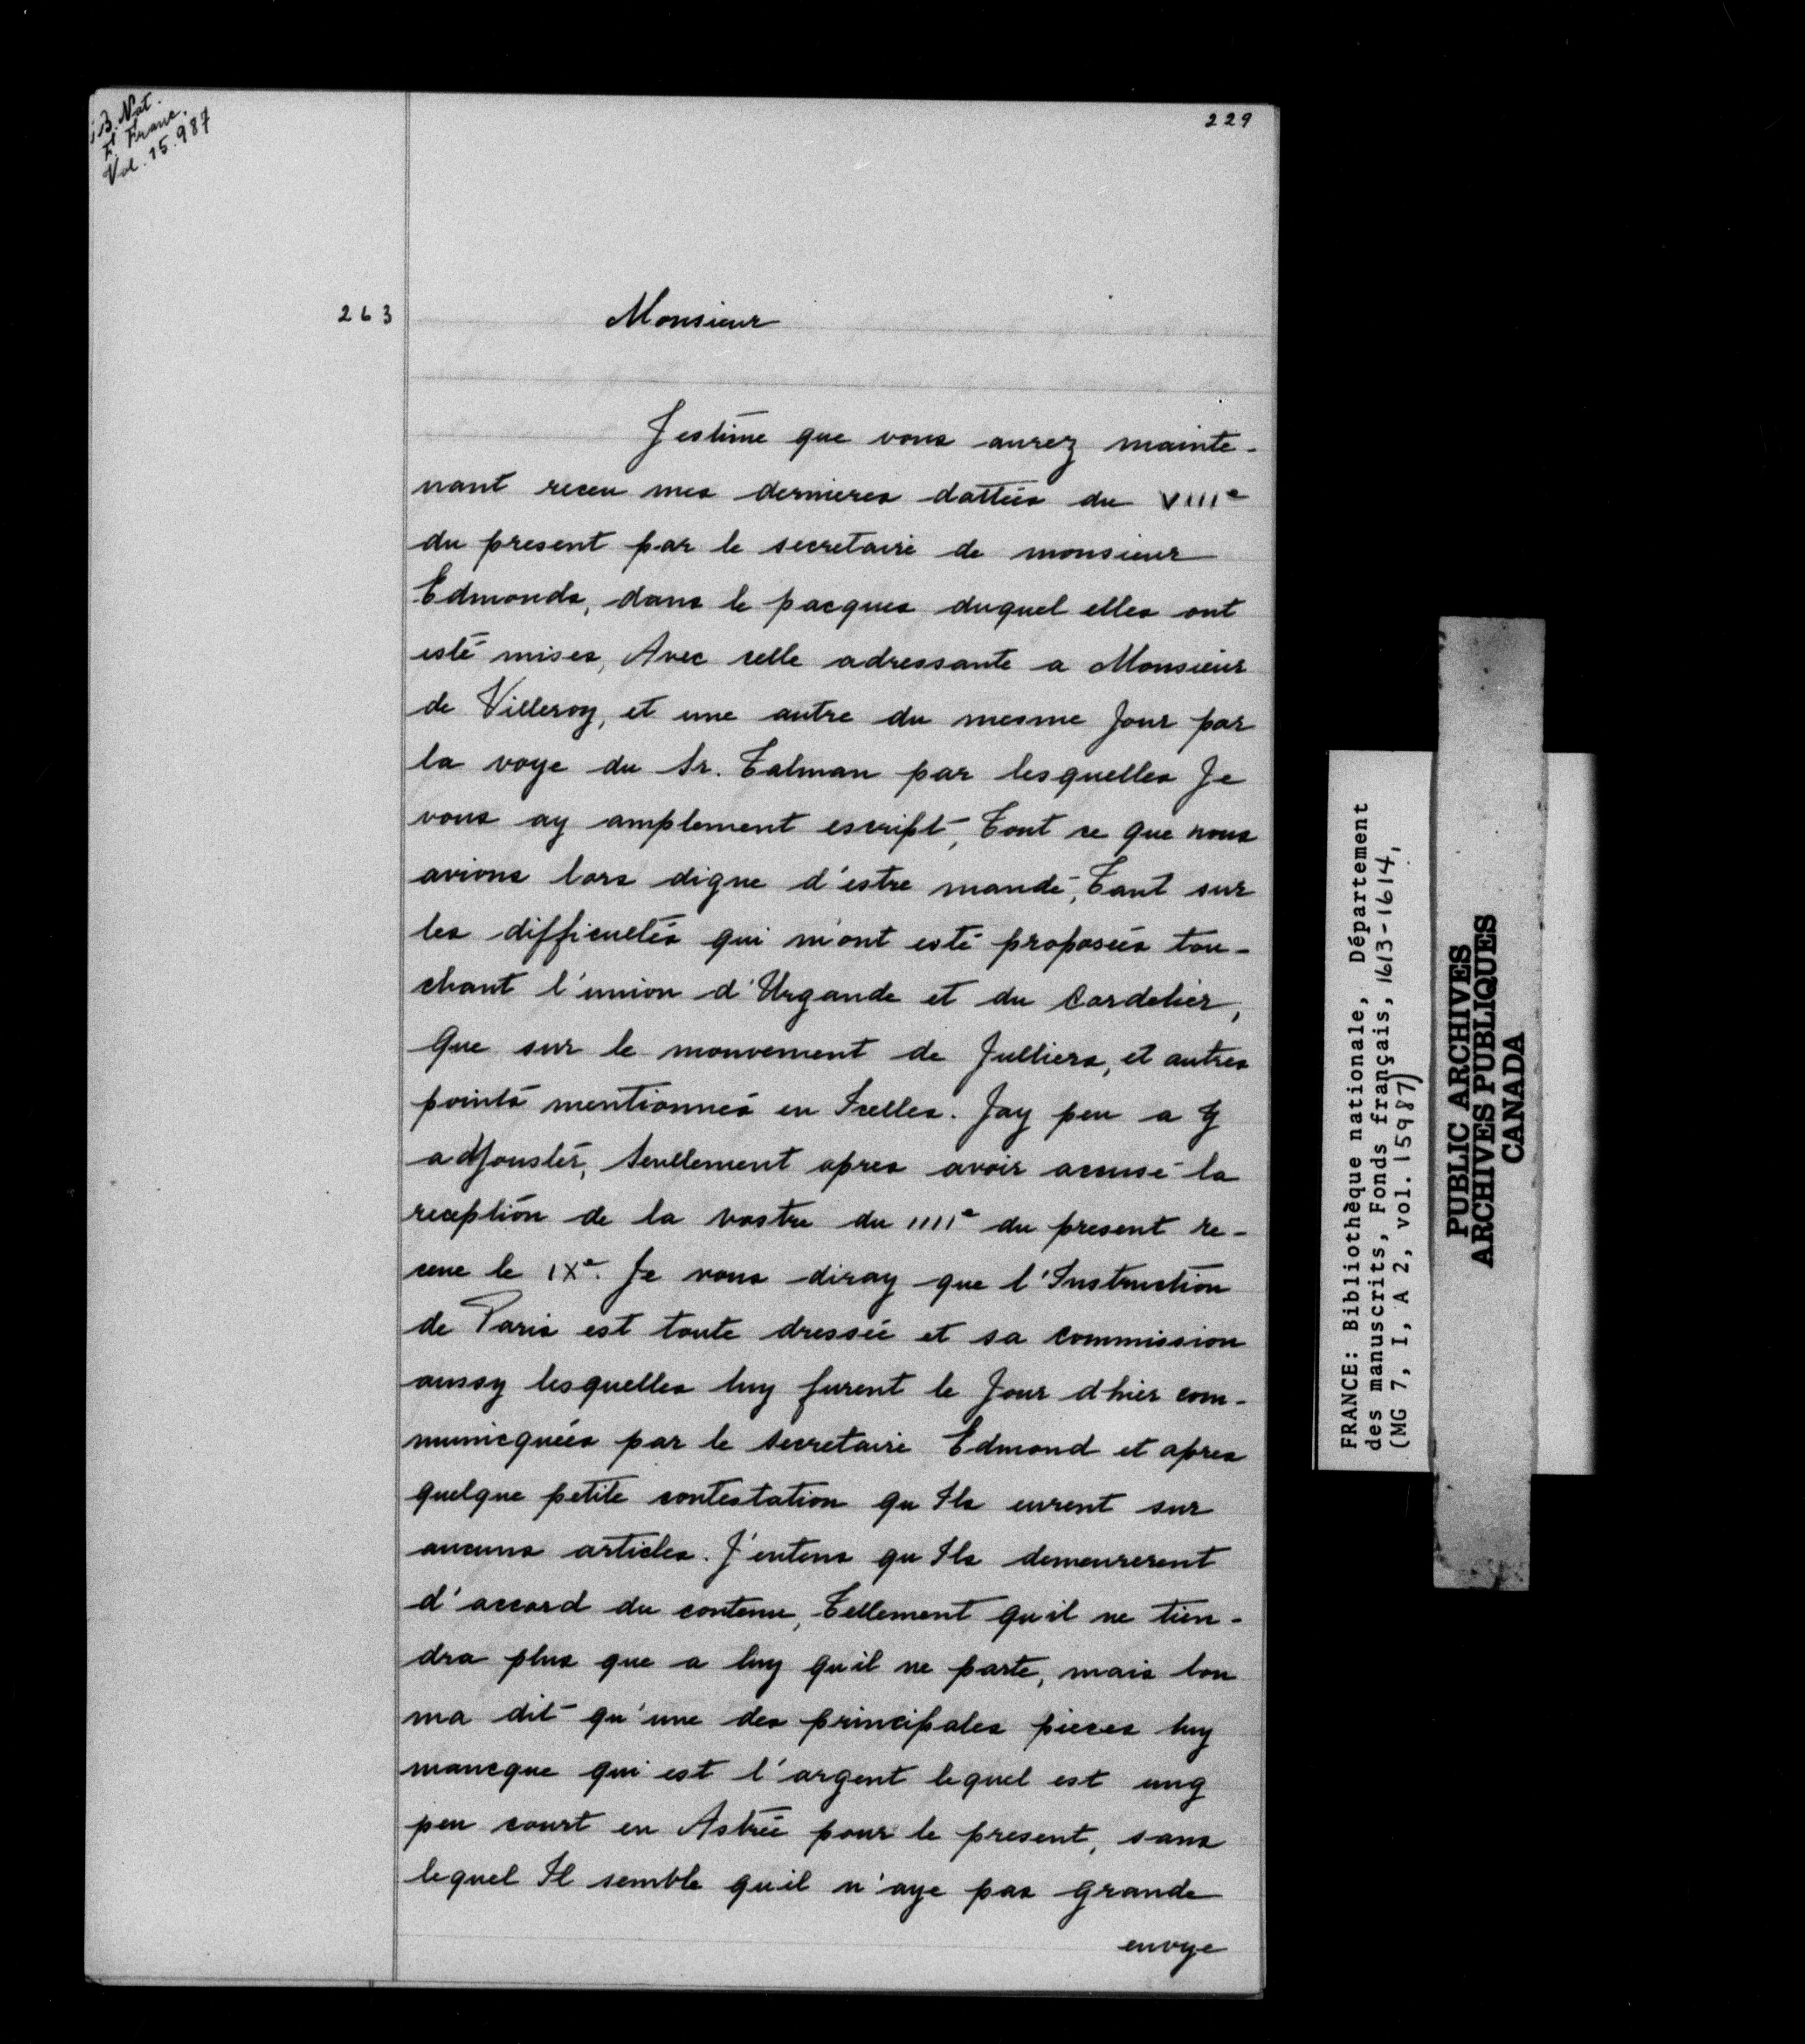 B. Nat.
F. Franc.
Vol. 15.987
229
263
Monsieur
J estime que vous aurez mainte-
nant receu mes dernieres dattées du VIIIe
du present par le secretaire de monsieur
Edmonds, dans le pacques duquel elles ont
esté mises, Avec celle adressante a Monsieur
de Villeroy, et une autre du mesme Jour par
la voye du Sr. Talman par lesquelles Je
vous ay amplement escript, Tout ce que nous
avions lors digne d'estre mandé, Tant sur
les difficultés qui m'ont esté proposées tou-
chant l'union d'Urgande et du Cordelier,
Que sur le mouvement de Julliers, et autres
points mentionnés en Icelles. Jay peu a Y
adjouster, Seullement apres avoir accusé la
reception de la vostre du IIIIe du present re-
ceue le IXe. Je vous diray que l'Instruction
de Paris est toute dressée et sa commission
aussy lesquelles luy furent le Jour d'hier com-
municquées par le Secretaire Edmond et apres
quelque petite contestation qu Ils eurent sur
aucuns articles. J'entens qu Ils demeurerent
d'accord du contenu, Tellement qu'il ne tien-
dra plus que a luy qu'il ne parte, mais lon
ma dit qu'une des principales pieces luy
mancque qui est l'argent lequel est ung
peu court en Astrée pour le present, sans
lequel Il semble qu'il n'aye pas grande
envye
FRANCE: Bibliothèque nationale, Département
des manuscrits, Fonds français, 1613-1614,
(MG 7, I, A 2, vol. 15987)
PUBLIC ARCHIVES
ARCHIVES PUBLIQUES
CANADA